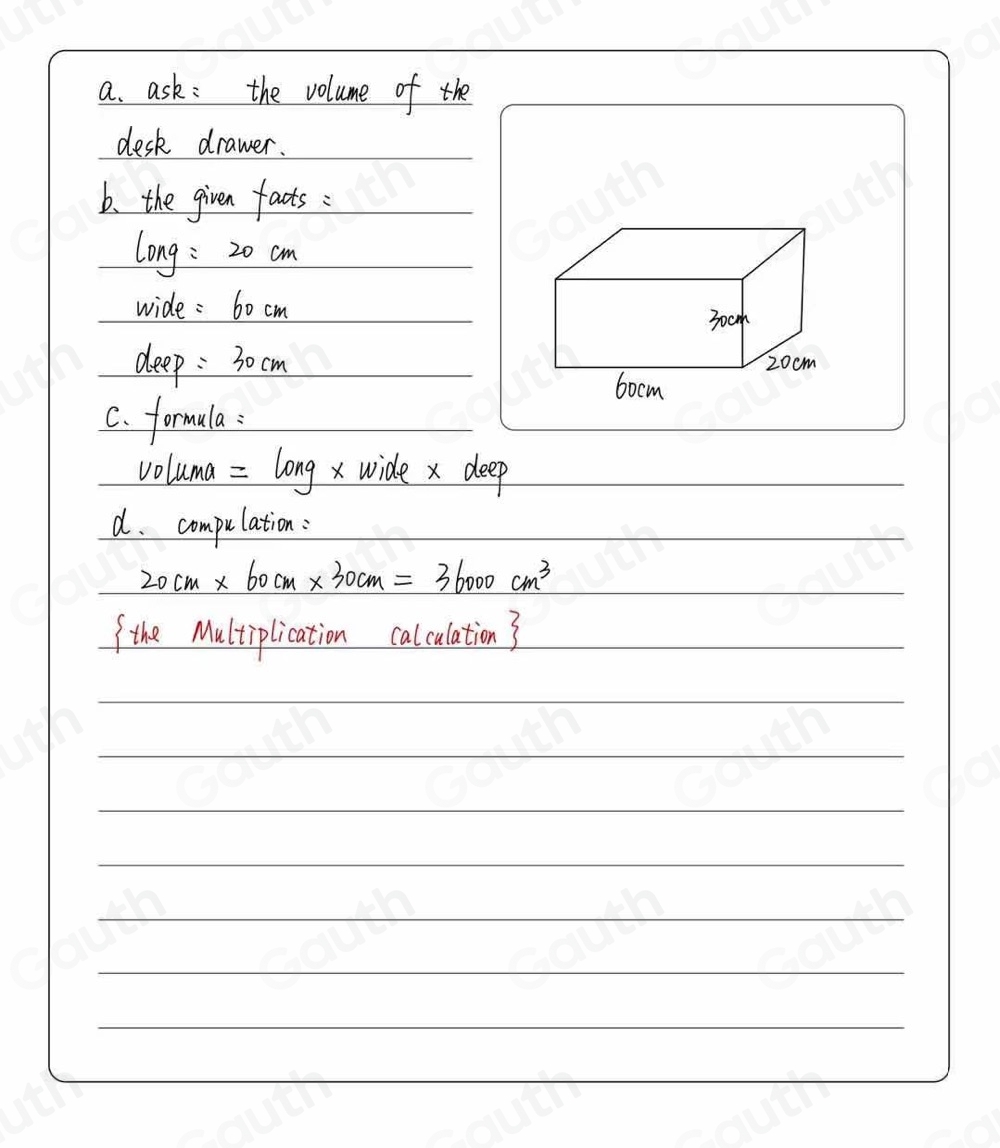 a. ask: the volume of the
desk drawer.
b. the given facts:
long: 20 cm
wide: 60 cm
deep: 30 cm
30cm
20cm
60cm
C. formula:
voluma = long × wide × deep
d. compulation:
20 cm × 60 cm × 30cm = 36000 cm³
{the Multiplication calculation}
Gauth